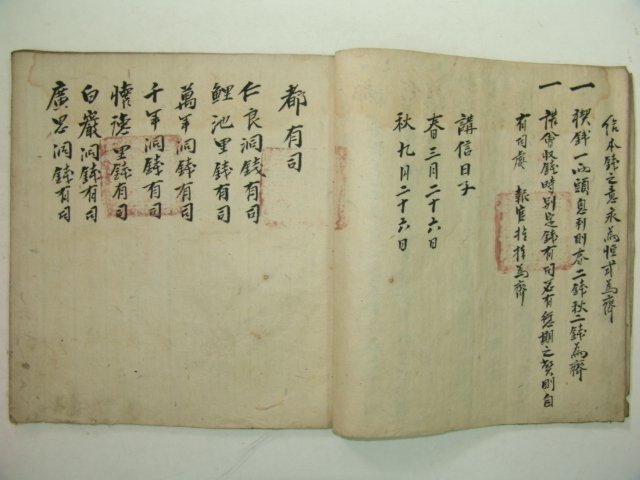 信本錢之意永爲恒式爲齊
一 稧錢一兩頭息利則春二錢秋二錢爲齊
一 講會收錢時別定錢有司若有愆期之弊則自
有司處 報官推捧爲齊
講信日子
春三月二十六日
秋九月二十六日
都有司
仁良洞錢有司
鯉池里錢有司
萬年洞錢有司
千年洞錢有司
懷德里錢有司
白巖洞錢有司
廣思洞錢有司